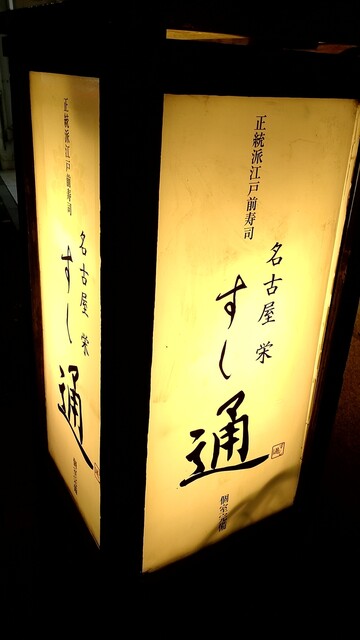 正統派江戸前寿司
名古屋 栄
すし
通
個室完備
正統派江戸前寿司
名古屋 栄
すし
通
個室完備